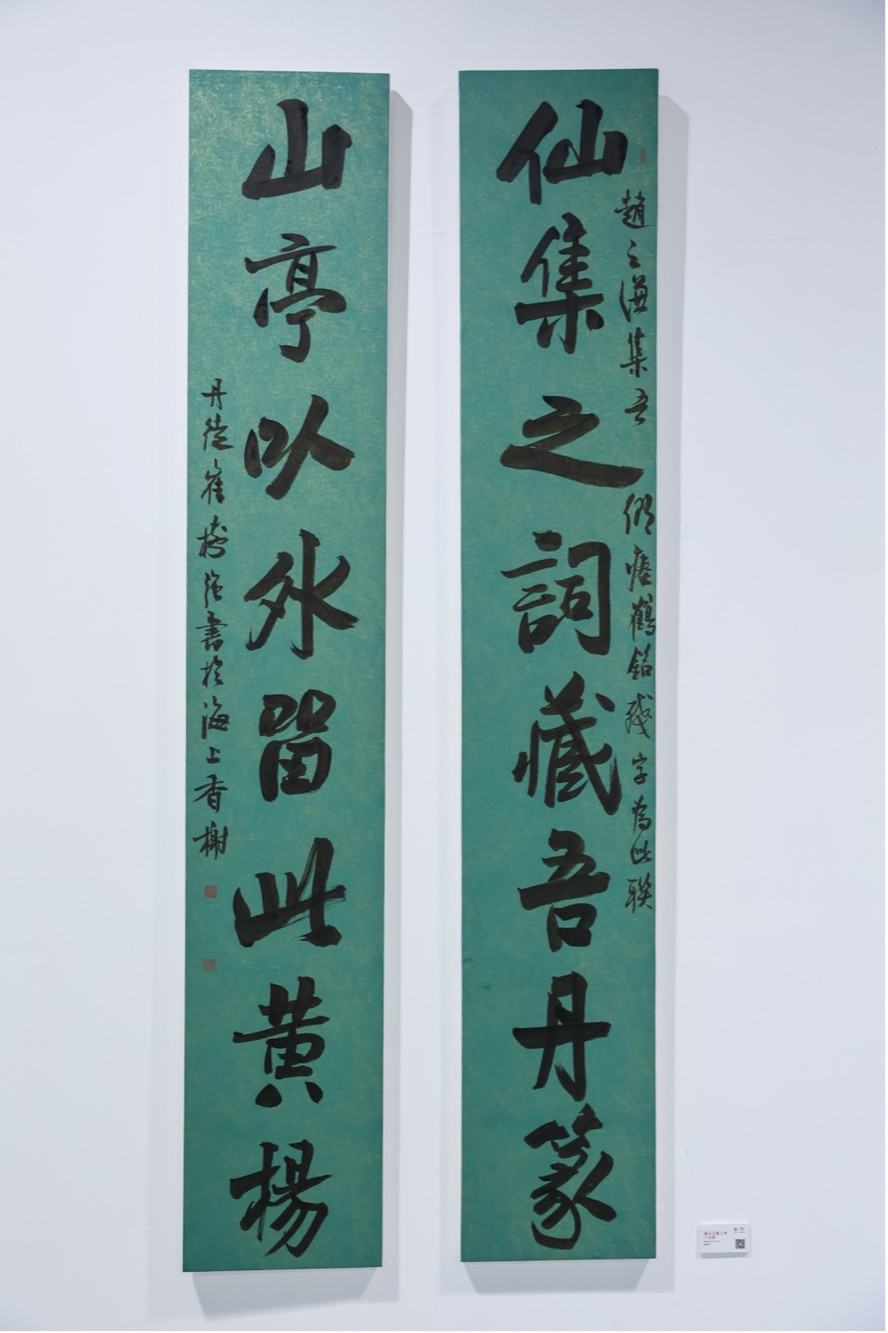 趙之謙集吾鄉瘞鶴銘殘字為此聯
仙集之詞藏吾丹篆
山亭以外留此黃楊
丹徒崔樹強書於海上香榭